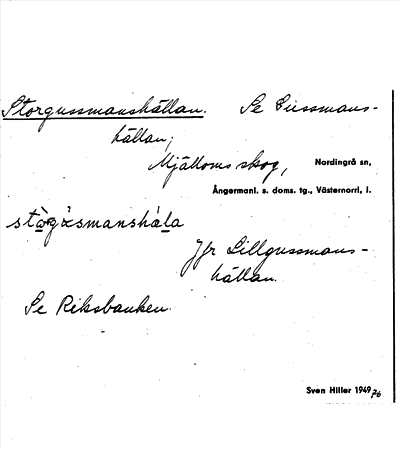 Storgussmanshällan. Se Gussmans-
hällan;
Mjälloms skog, Nordingrå sn,
Ångermanl. s. doms. tg., Västernorrl. l.
stò̱rgùsmanshàḷa
Jfr Lillgussmans-
hällan.
Se Riksbanken.
Sven Hiller 1949 76